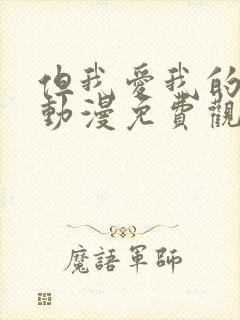 但我愛我的
動漫免費觀
魔語軍師